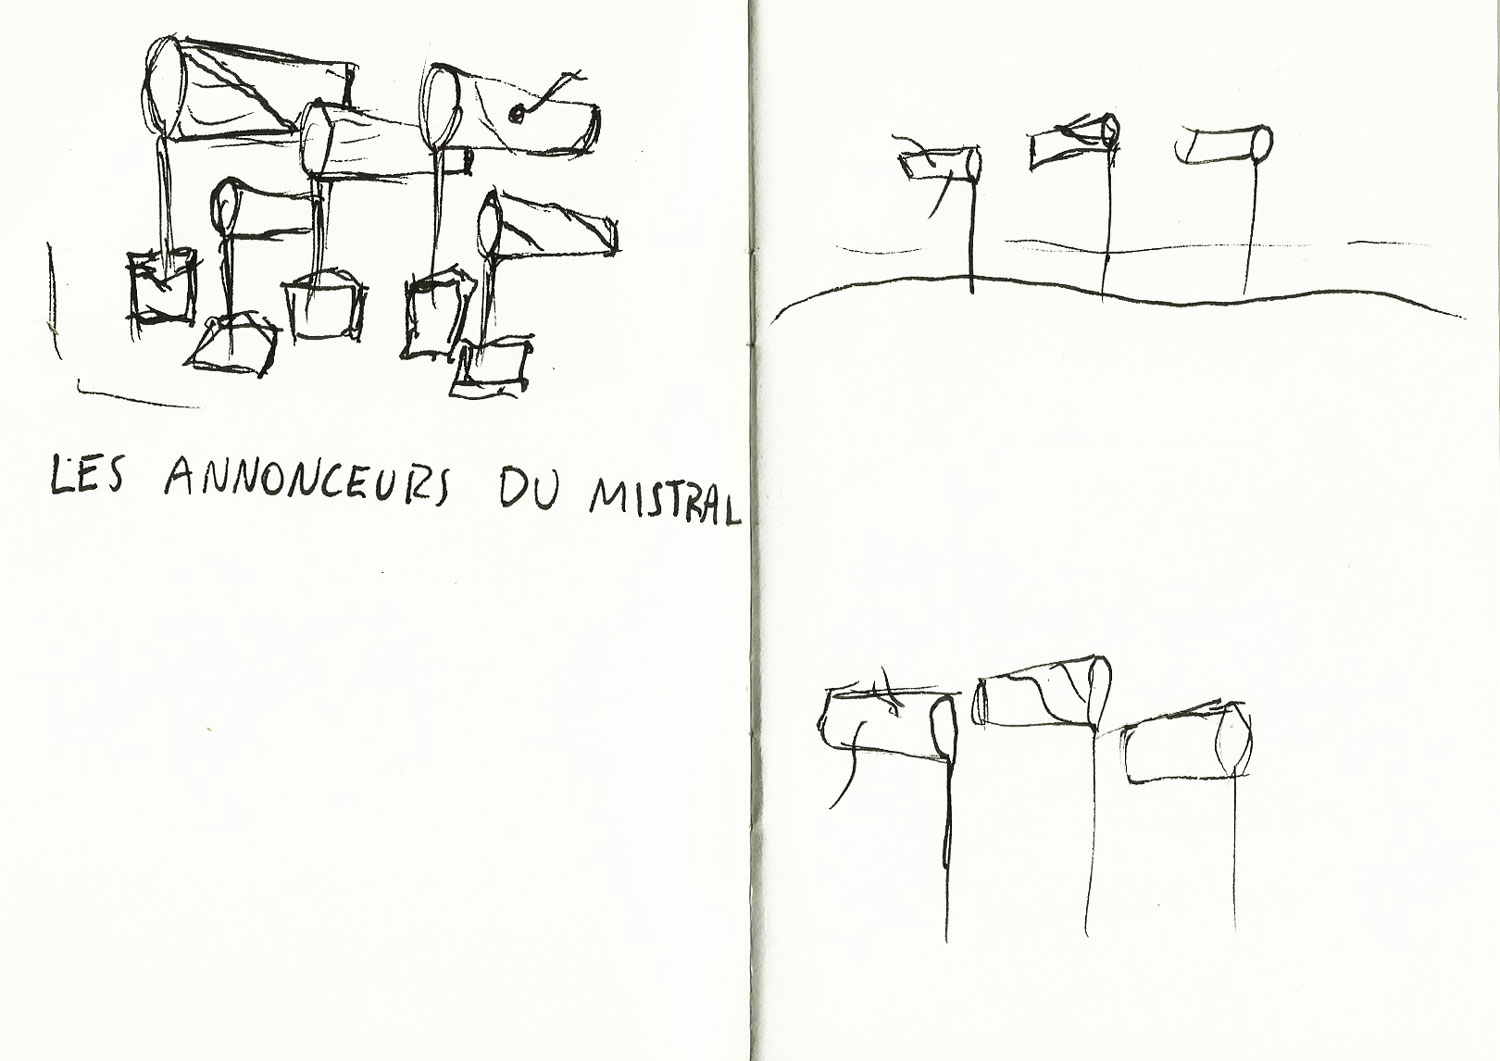 LES ANNONCEURS DU MISTRAL